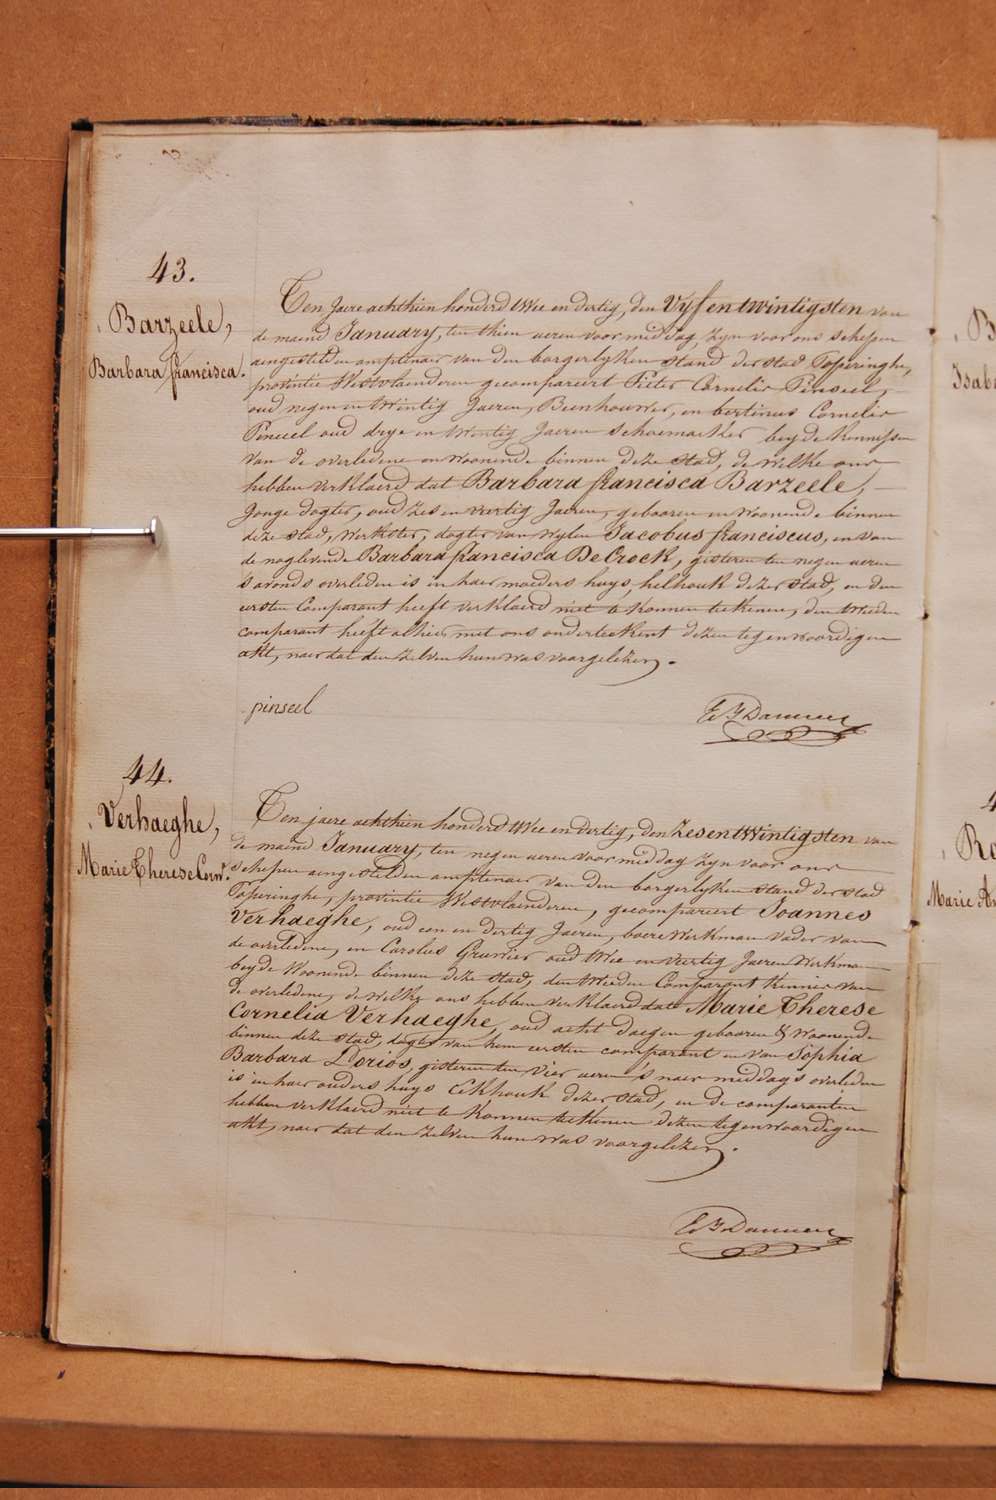 43.
Barzeele,
Barbara francisca.
Ten Jaere achthien honderd twee en dertig, den Vyf en twintigsten van
de maend January, ten thien ueren voor middag, zyn voor ons schepen
aengestelden amptenaer van den borgerlyken Stand der stad Poperinghe,
provintie Westvlaenderen gecompareert Pieter Cornelis Pinseel,
oud negen en twintig Jaeren, Beenhouwer, en bertinus Cornelis
Pinseel oud drye en twintig Jaeren schoemaeker beyde kennissen
van de overledene en woonende binnen deze stad, de welke ons
hebben verklaerd dat Barbara francisca Barzeele,
Jonge dogter, oud zes en veertig Jaeren, gebooren en woonende binnen
deze stad, werkster, dogter van wylen Jacobus franciscus, en van
de noglevende Barbara francisca De Crock, gisteren ten negen ueren
's avonds overleden is in haer moeders huys, helhouk dezer stad, en den
eersten Comparant heeft verklaerd niet te konnen teekenen, den tweeden
comparant heeft alhier met ons onderteekent dezen tegenwoordigen
akt, naer dat den zelven hun was voorgelezen.
pinseel
44.
Verhaeghe,
Marie Therese Corn.
Ten jaere achthien honderd twee en dertig, den Zes en twintigsten van
de maend January, ten negen ueren voor middag zyn voor ons
schepen aengestelden amptenaer van den borgerlyken stand der stad
Poperinghe, provintie Westvlaenderen, gecompareert Joannes
Verhaeghe, oud een en dertig Jaeren, boere werkman vader van
de overledene, en Carolus oud twee en veertig Jaeren Werkman
beyde Woonende binnen deze stad, den tweeden Comparant kenner van
de overledene, de welke ons hebben verklaerd dat Marie Therese
Cornelia Verhaeghe, oud acht daegen gebooren & woonende
binnen deze stad, dogter van hem eersten comparant en van Sophia
Barbara Dorios, gisteren ten vier ueren 's naer middags overleden
is in haer ouders huys Eekhouk dezer stad, en de comparanten
hebben verklaerd niet te konnen teekenen dezen tegenwoordigen
akt, naer dat den zelven hun was voorgelezen.
Marie